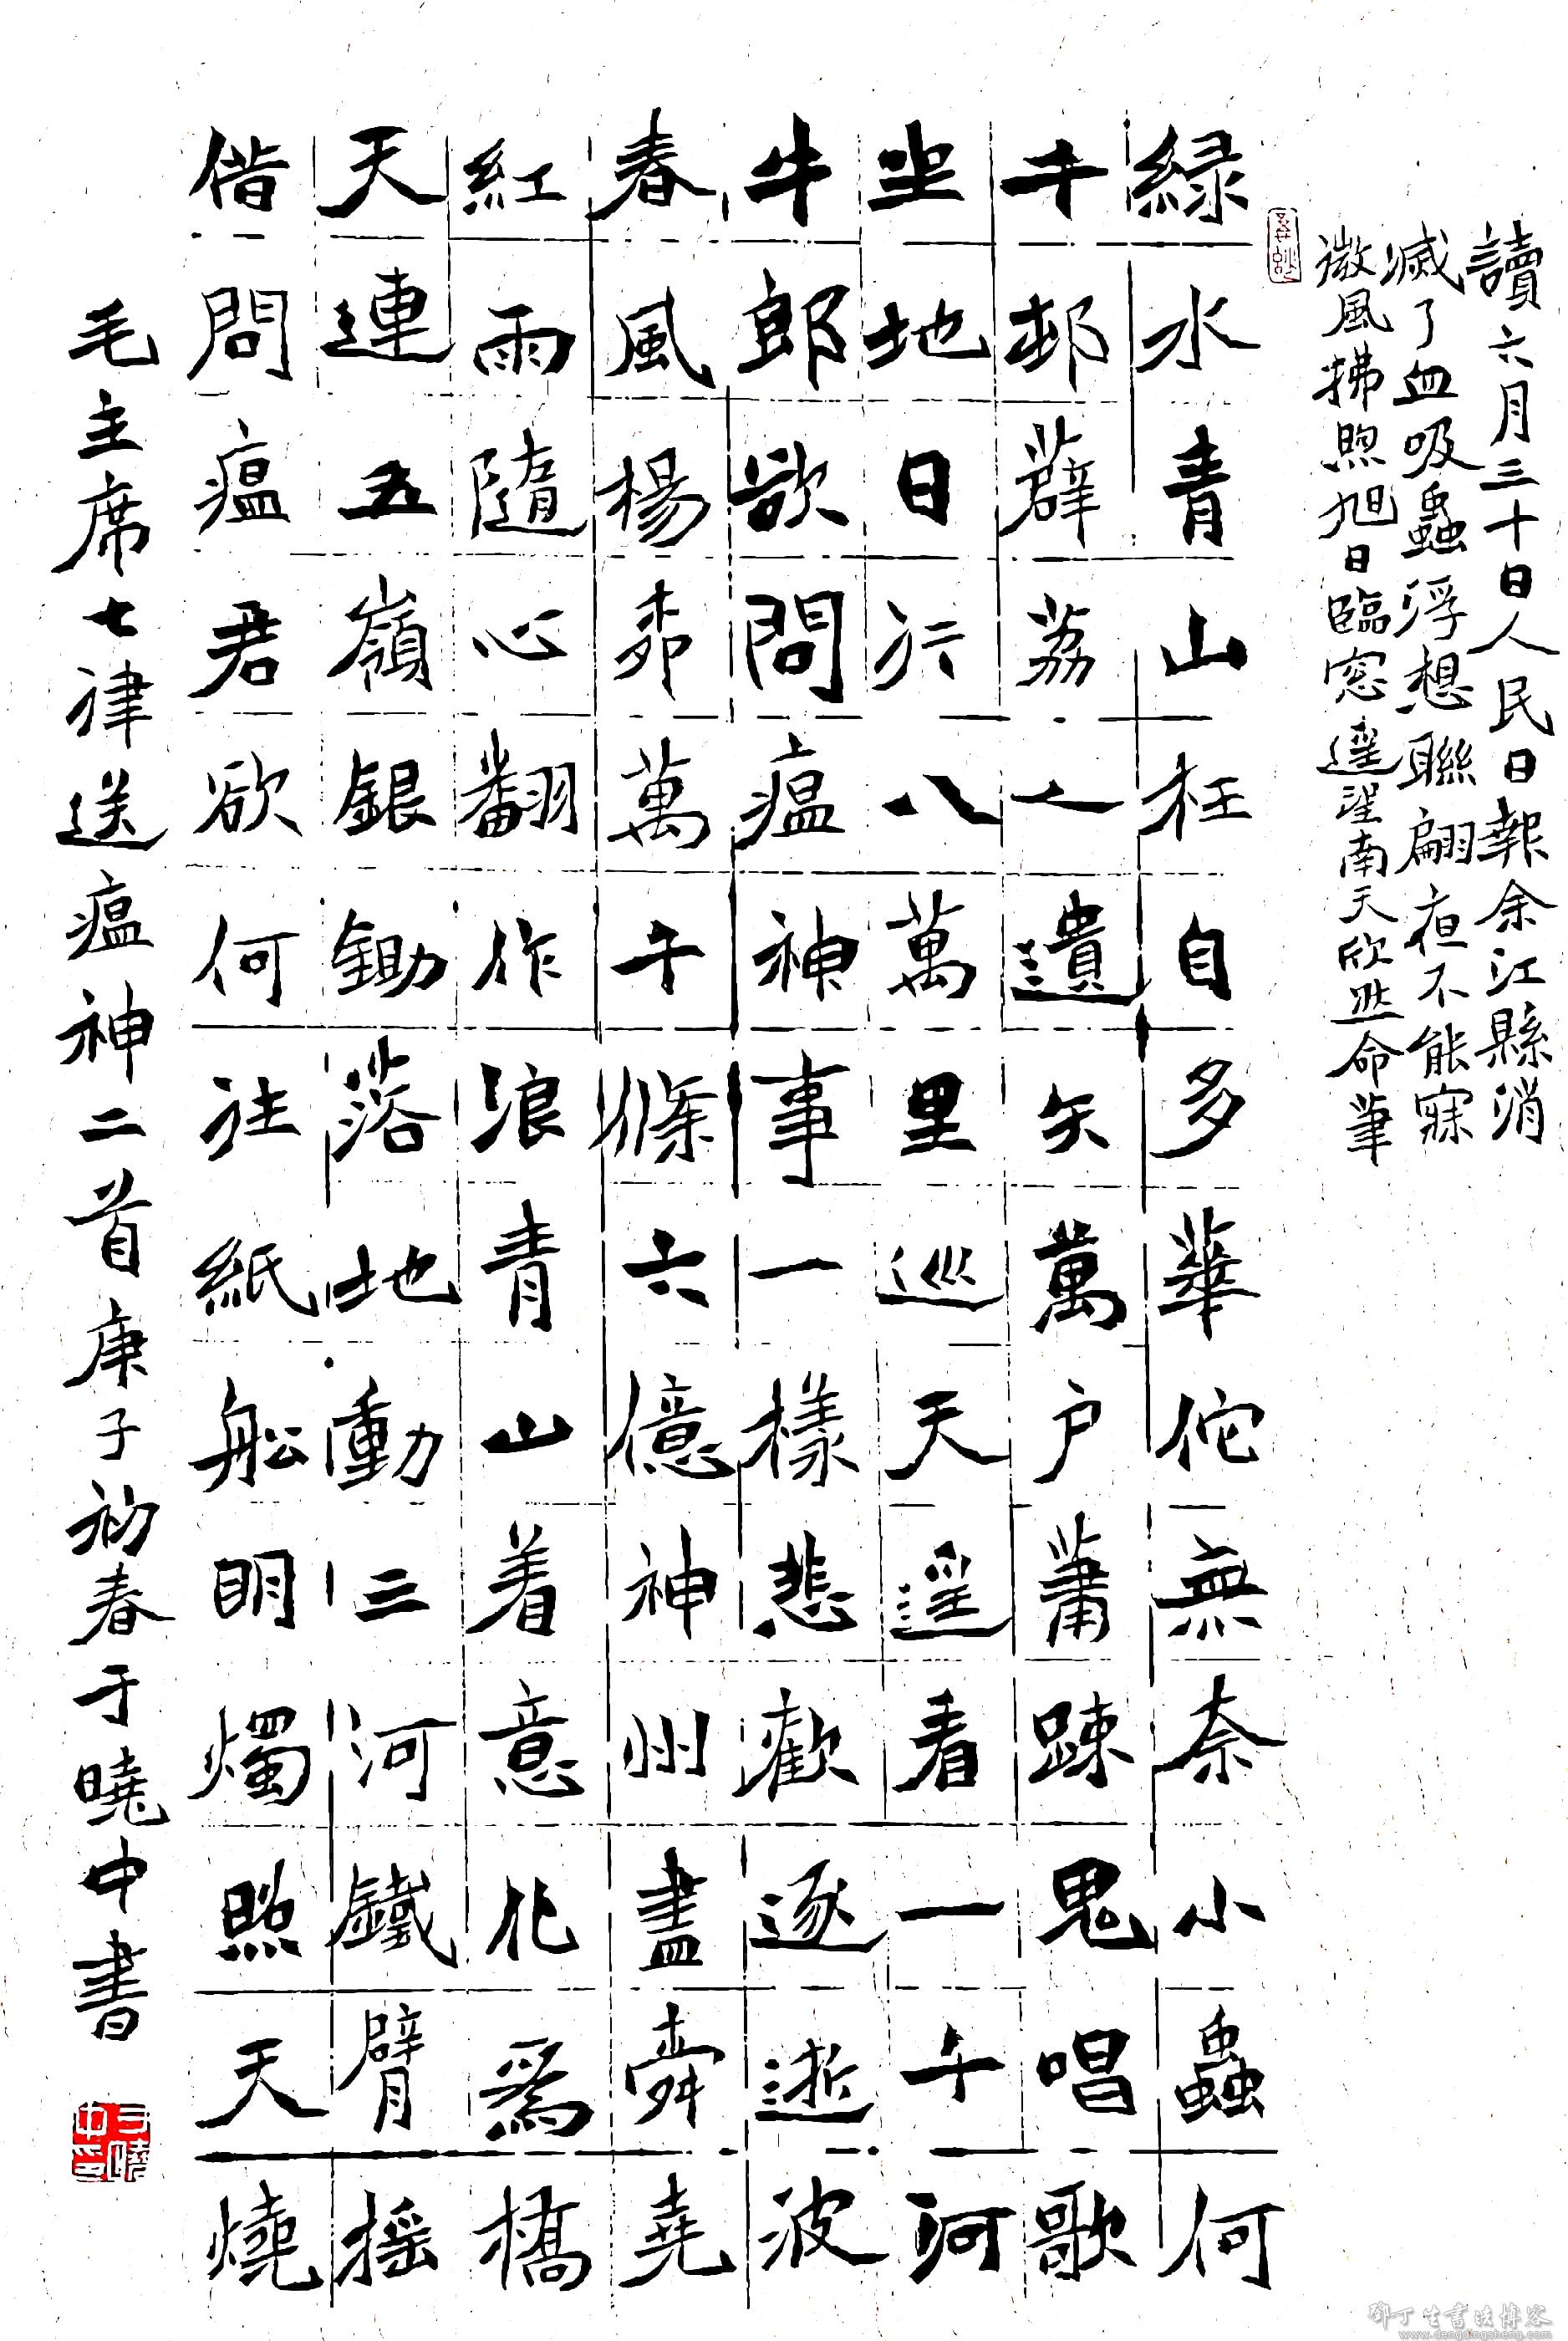 讀六月三十日人民日報余江縣消
滅了血吸蟲浮想聯翩夜不能寐
微風拂煦旭日臨窓遥望南天欣然命筆
緑水青山枉自多華佗無奈小蟲何
千邨薜荔人遺矢萬户蕭疎鬼唱歌
坐地日行八萬里巡天遥看一千河
牛郎欲問瘟神事一樣悲歡逐逝波
春風楊柳萬千條六億神州盡舜堯
紅雨隨心翻作浪青山着意化爲橋
天連五嶺銀鋤落地動三河鐵臂摇
借問瘟君欲何往紙船明燭照天燒
毛主席七律送瘟神二首庚子初春于曉中書
于曉中印
鄧丁生書法博客
www.dengdingsheng.com